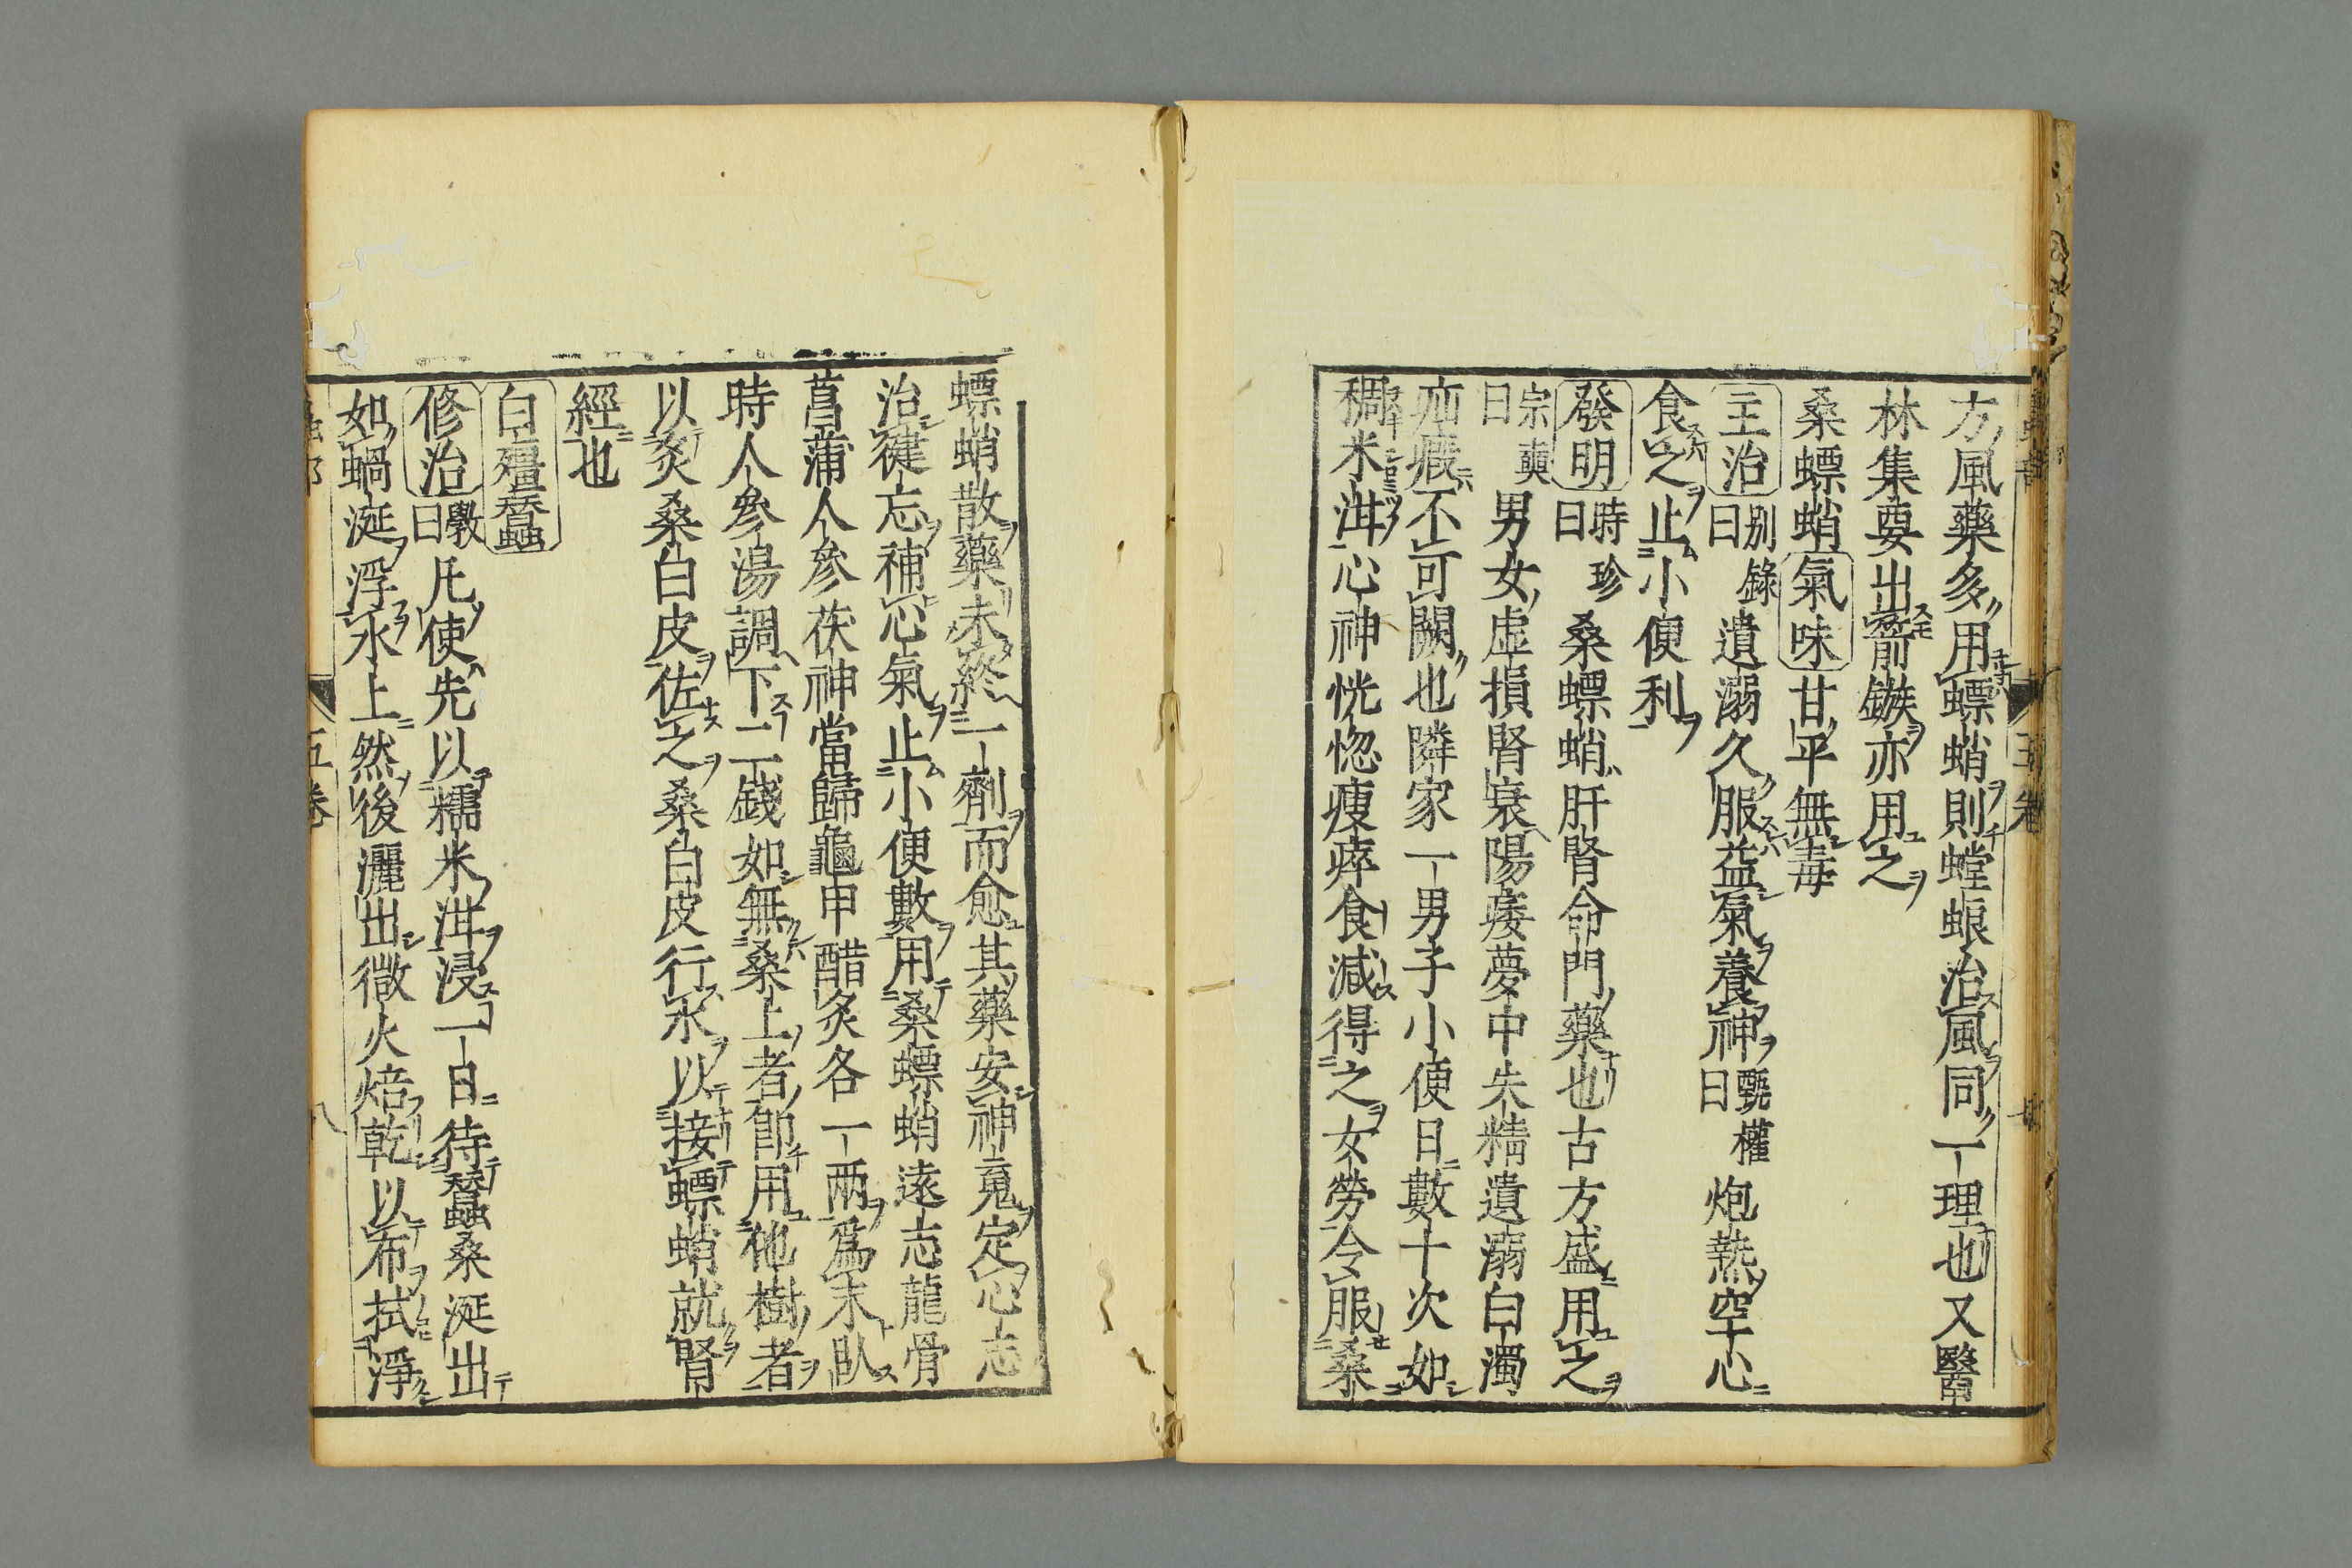 方風藥多用螵蛸則螳蜋治風同一理也又醫
林集要出箭鏃亦用之
桑螵蛸氣味甘平無毒
主治別錄曰遺溺久服益氣養神甄權曰炮熱空心
食之止小便利
發明時珍曰桑螵蛸肝腎命門藥也古方盛用之
宗奭曰男女虛損腎衰陽痿夢中失精遺溺白濁
疝瘕不可闕也隣家一男子小便日數十次如
稠米泔心神恍惚瘦瘁食減得之女勞令服桑
螵蛸散藥未終一劑而愈其藥安神䰟定心志
治健忘補心氣止小便數用桑螵蛸遠志龍骨
菖蒲人參茯神當歸龜甲醋炙各一兩爲末臥
時人參湯調下二錢如無桑上者卽用他樹者
以炙桑白皮佐之桑白皮行水以接螵蛸就腎
經也
白殭蠶
修治斅曰凡使先以糯米泔浸一日待蠶桑涎出
如蝸涎浮水上然後灑出微火焙乾以布拭淨
五卷